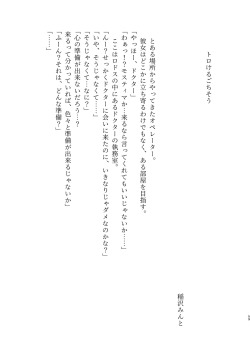 トロけるごちそう
稲沢みんと
とある場所からやってきたオペレーター。
彼女はどこかに立ち寄るわけでもなく、ある部屋を目指す。
「やっほー、ドクター」
「わぁっ！？モスティマか…来るなら言ってくれてもいいじゃないか……」
ここはロドスの中にあるドクターの執務室。
「んー？せっかくドクターに会いに来たのに、いきなりじゃダメなのかな？」
「いや、そうじゃなくて……」
「そうじゃなくて…なに？」
「心の準備が出来ないだろう…？
来るって分かっていれば、色々と準備が出来るじゃないか」
「ふーん？それは、どんな準備？」
「……」